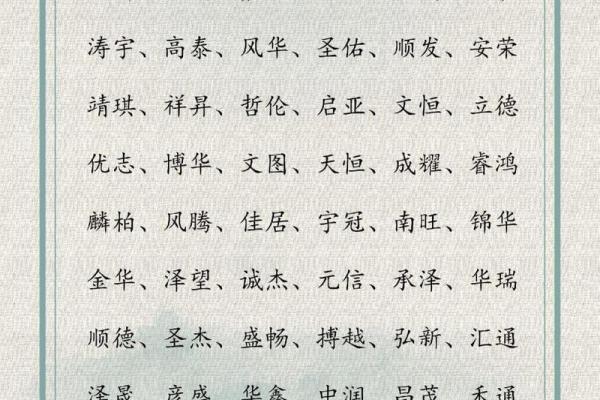 涛宇、高泰、风华、圣佑、顺发、安荣
靖琪、祥昇、哲伦、启亚、文恒、立德
优志、博华、文图、天恒、成耀、睿鸿
麟柏、风腾、佳居、宇冠、南旺、锦华
金华、泽望、诚杰、元信、承泽、华瑞
顺德、圣杰、盛畅、搏越、弘新、汇通
泽晟、彦盛、华鑫、中润、昌茂、禾通